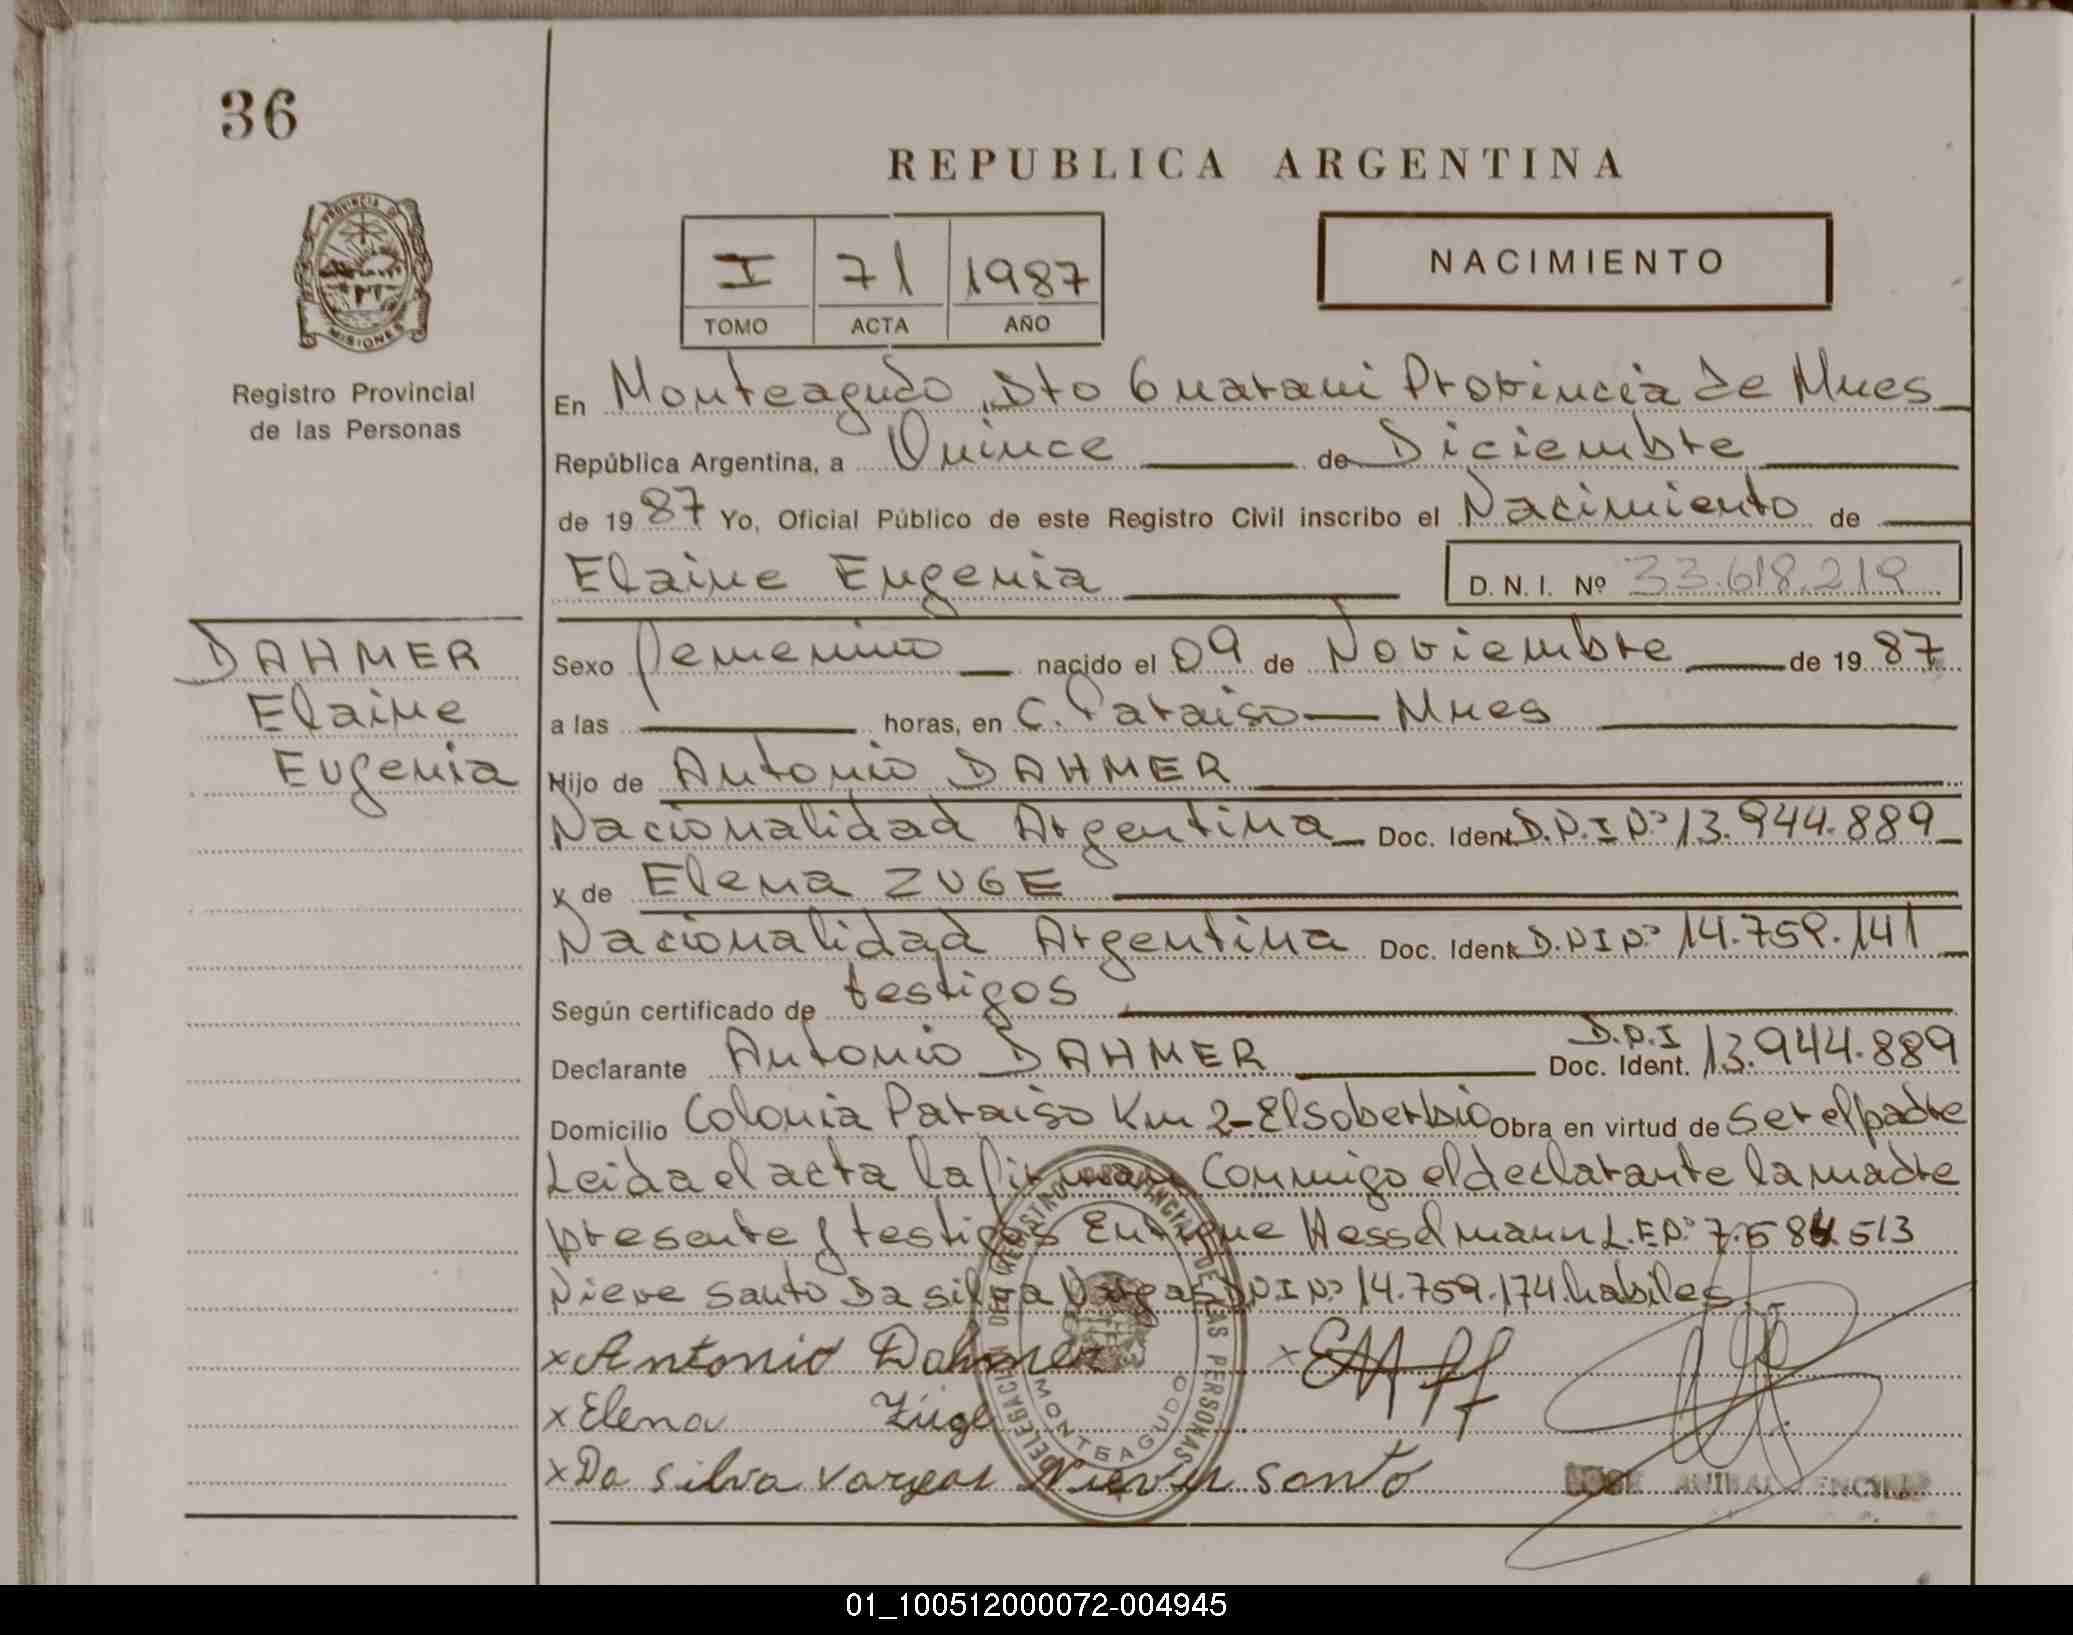 36
REPUBLICA ARGENTINA
PROVINCIA DE
MISIONES
Registro Provincial
de las Personas
I 71 1987
TOMO ACTA AÑO
NACIMIENTO
En Monteagudo, Dto Guarani Provincia de Mnes
República Argentina, a Quince de Diciembre
de 1987 Yo, Oficial Público de este Registro Civil inscribo el Nacimiento de
Elaine Eugenia D. N. I. Nº 33.618.219
DAHMER
Elaine
Eugenia
Sexo femenino nacido el 09 de Noviembre de 1987
a las horas, en C. Paraiso — Mnes
Hijo de Antonio DAHMER
Nacionalidad Argentina Doc. Ident. D.N.I Nº 13.944.889
y de Elena ZUGE
Nacionalidad Argentina Doc. Ident. D.N.I Nº 14.759.141
Según certificado de testigos
Declarante Antonio DAHMER D.N.I Doc. Ident. 13.944.889
Domicilio Colonia Paraiso Km 2-El Soberbio Obra en virtud de ser el padre
Leida el acta la firman Conmigo el declarante la madre
presente y testigos Enrique Hesselmann L.E Nº 7.584.513
Nieve Santo Da silva Vargas D.N.I Nº 14.759.174 habiles
x Antonio Dahmer x
x Elena Züge
x Da silva vargas Nieve santo
DELEGACION DEL REGISTRO PROVINCIAL DE LAS PERSONAS
MONTEAGUDO
01_100512000072-004945